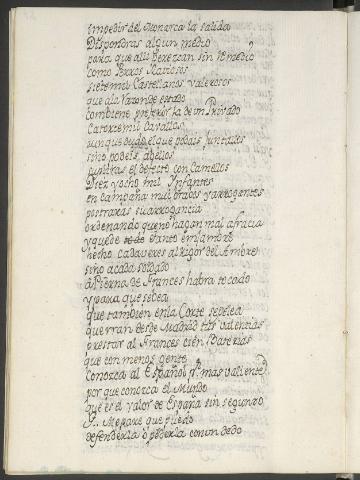 impedir del Monarca la salida
Dispondras algun medio
para que alli perezcan sin Remedio
como Perros Rabiosos
siete mil Castellanos valerosos
que a la Razon de estado
combiene preferir la de un Privado
Catorce mil Cavallos
aunque dudo el que podais juntarlos
sino podeis, a ellos
supliras el defecto con Camellos
Diez y ocho mil Infantes
en campaña mui osados y arrogantes
postraras su arrogancia
ordenando que no hagan mal a Francia
y quede todo tanto enjambre
hecho cadaveres al rigor del Ambre
sino a cada soldado
a Pierna de Frances habra tocado
y para que se vea
que tambien en la Corte se pelea
querran desde Madrid tus valentias
prestar al Frances cien Baterias
que con menos gente
conozca al Español pr. mas valiente
por que conozca el Mundo
que es el valor de España sin segundo
Me pare que puedo
defenderla o poderla con un dedo